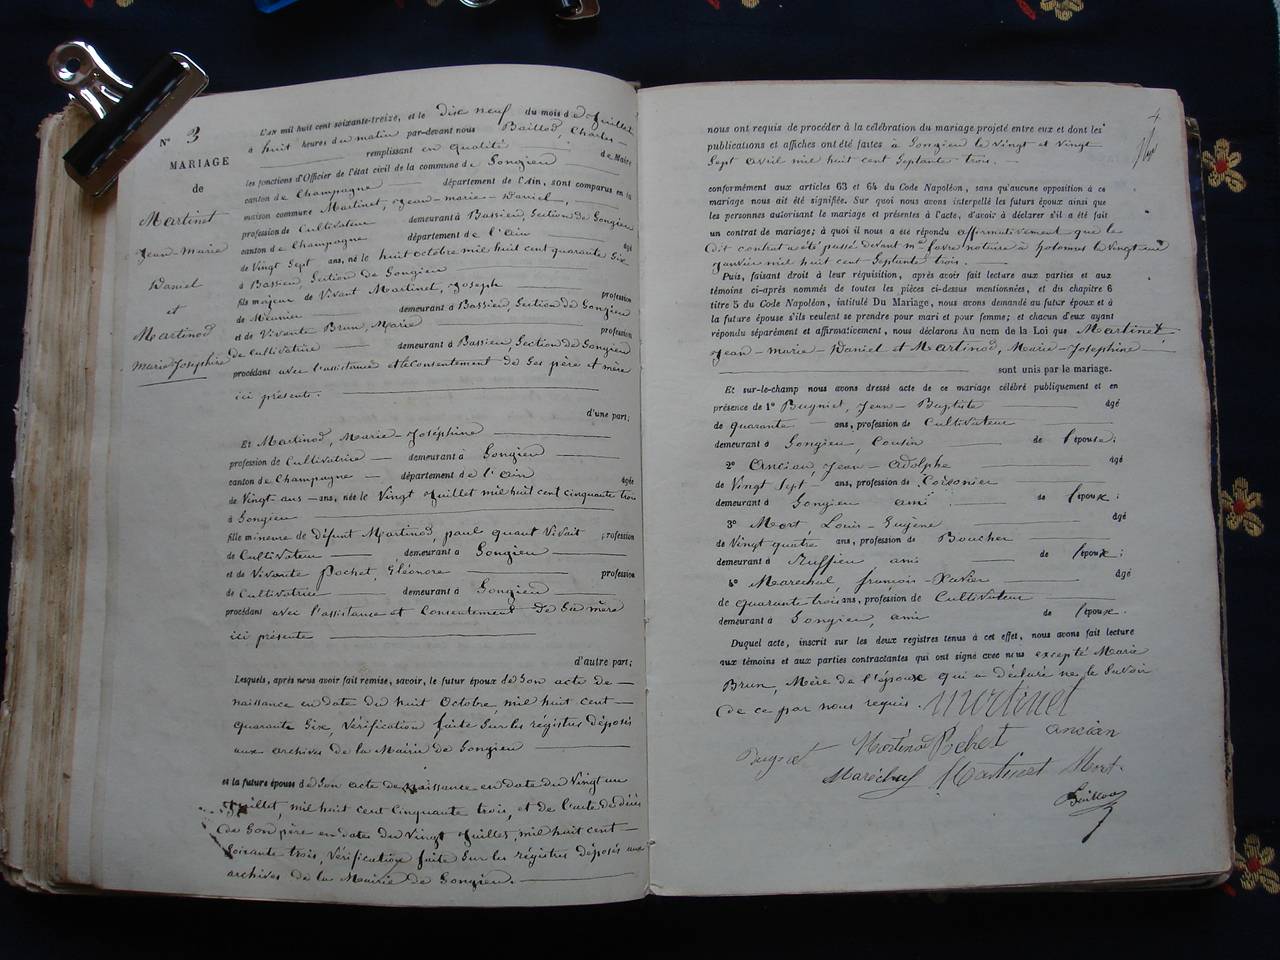 N° 3
MARIAGE
de
Martinet
Jean-Marie
Daniel
et
Martinod
Marie Josephine
L'AN mil huit cent soixante-treize, et le dix neuf du mois de Juillet
à huit heures du matin par-devant nous Baillod, Charles-
remplissant en qualité de Maire
les fonctions d'Officier de l'état civil de la commune de Songieu
canton de Champagne département de l'Ain, sont comparus en la
maison commune Martinet, Jean-marie-Daniel,
profession de Cultivateur demeurant à Bassieu, Section de Songieu
canton de Champagne département de l'Ain âgé
de Vingt Sept ans, né le huit octobre mil huit cent quarante Six
à Bassieu, Section de Songieu
fils majeur de Vivant Martinet, Joseph profession
de Meunier demeurant à Bassieu, Section de Songieu
et de Vivante Brun, Marie profession
de Cultivatrice demeurant à Bassieu, Section de Songieu
procédant avec l'assistance et le Consentement de Ses père et mère
ici présents.
d'une part;
Et Martinod, Marie-Joséphine
profession de Cultivatrice demeurant à Songieu
canton de Champagne département de l'Ain âgée
de Vingt ans ans, née le Vingt Juillet mil huit cent cinquante trois
à Songieu
fille mineure de défunt Martinod, paul quant Vivait profession
de Cultivateur demeurant à Songieu
et de Vivante Pochet, Eléonore profession
de Cultivatrice demeurant à Songieu
procédant avec l'assistance et Consentement de Sa mère
ici présente
d'autre part;
Lesquels, après nous avoir fait remise, savoir, le futur époux de Son acte de
naissance en date du huit Octobre mil huit cent
quarante Six, Vérification faite Sur les régistres déposés
aux archives de la Mairie de Songieu
et la future épouse de Son acte de Naissance en date du Vingt un
Juillet, mil huit cent Cinquante trois, et de l'acte de décès
de Son père en date du Vingt Juillet, mil huit cent
Soixante trois, Vérification faite Sur les régistres déposés aux
archives de la Mairie de Songieu.
4
nous ont requis de procéder à la célébration du mariage projeté entre eux et dont les
publications et affiches ont été faites à Songieu le Vingt et Vingt
Sept avril mil huit cent Septante trois.
conformément aux articles 63 et 64 du Code Napoléon, sans qu'aucune opposition à ce
mariage nous ait été signifiée. Sur quoi nous avons interpellé les futurs époux ainsi que
les personnes autorisant le mariage et présentes à l'acte, d'avoir à déclarer s'il a été fait
un contrat de mariage; à quoi il nous a été répondu affirmativement que le
dit contrat a été passé devant me favre notaire à hotonnes le vingt un
janvier mil huit cent Septante trois.
Puis, faisant droit à leur réquisition, après avoir fait lecture aux parties et aux
témoins ci-après nommés de toutes les pièces ci-dessus mentionnées, et du chapitre 6
titre 5 du Code Napoléon, intitulé Du Mariage, nous avons demandé au futur époux et à
la future épouse s'ils veulent se prendre pour mari et pour femme; et chacun d'eux ayant
répondu séparément et affirmativement, nous déclarons Au nom de la Loi que Martinet,
Jean-marie-Daniel et Martinod, Marie-Josephine
sont unis par le mariage.
Et sur-le-champ nous avons dressé acte de ce mariage célébré publiquement et en
présence de 1° Bugniet, Jean-Baptiste âgé
de quarante ans, profession de Cultivateur
demeurant à Songieu, Cousin de l'épouse;
2° Ancian, Jean-Adolphe âgé
de Vingt Sept ans, profession de
demeurant à Songieu ami de l'époux;
3° Mort, Louis-Eugène âgé
de Vingt quatre ans, profession de Boucher
demeurant à Ruffieu ami de l'époux;
4° Maréchal, françois-Xavier âgé
de quarante trois ans, profession de Cultivateur
demeurant à Songieu, ami de l'époux.
Duquel acte, inscrit sur les deux registres tenus à cet effet, nous avons fait lecture
aux témoins et aux parties contractantes qui ont signé avec nous excepté Marie
Brun, Mère de l'épouse qui a déclaré ne le Savoir
de ce par nous requis. Martinet
Bugniet Martinod Pochet ancian
Maréchal Martinet Mort.
Baillod